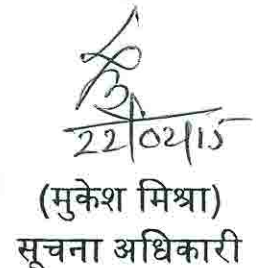 22/02/15
(मुकेश मिश्रा)
सूचना अधिकारी